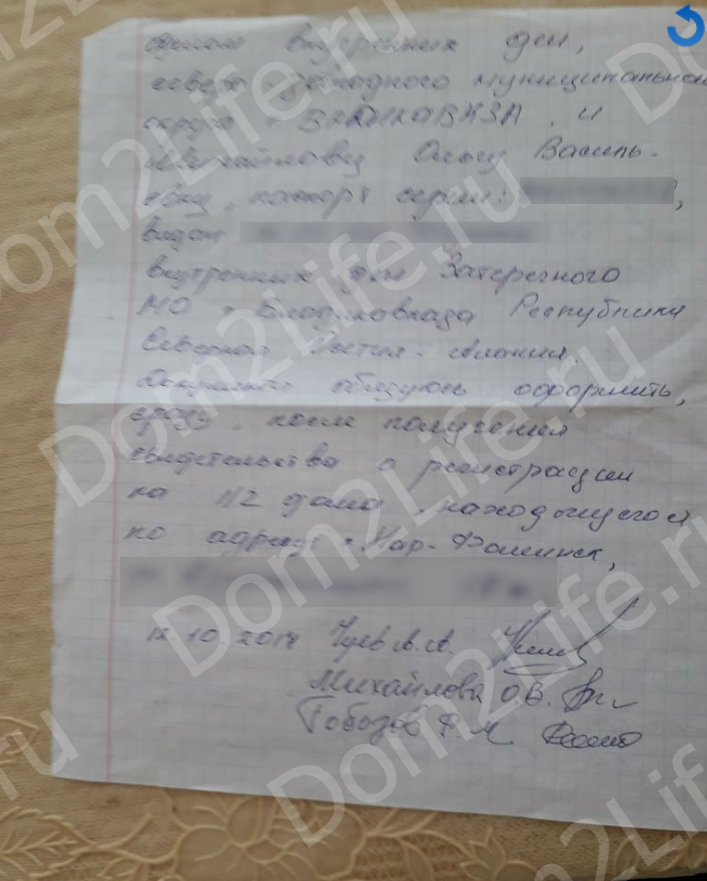 внутренних дел,
северо западного муниципального
округа г. ВЛАДИКАВКАЗА, и
Михайлову Ольгу Василь-
евну, паспорт серии:
выдан
внутренних дел Затеречного
МО г. Владикавказа Республики
Северная Осетия - Алания.
Документы обязуюсь оформить,
сразу, после получения
свидетельства о регистрации
на 1/2 дома, находящегося
по адресу: г. Нар-Фоминск,
12.10.2014
Михайлова О.В.
Гобозов Ф.М
Dom2Life.ru